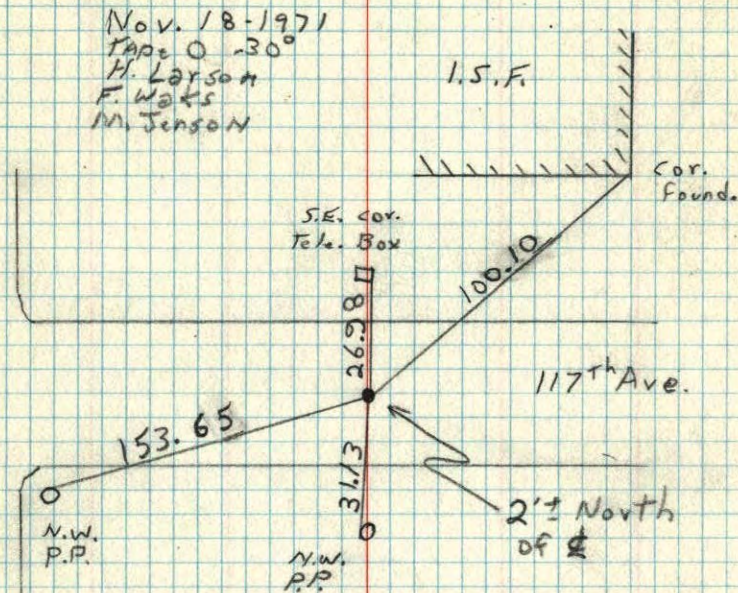 Nov. 18-1971
Tape 0 -30°
H. Larson
F. Waks
M. Jenson
1.S.F.
Cor.
Found.
S.E. cor.
Tele. Box
100.10
26.98
117th Ave.
153.65
31.13
2'± North
of ℄
N.W.
P.P.
N.W.
P.P.